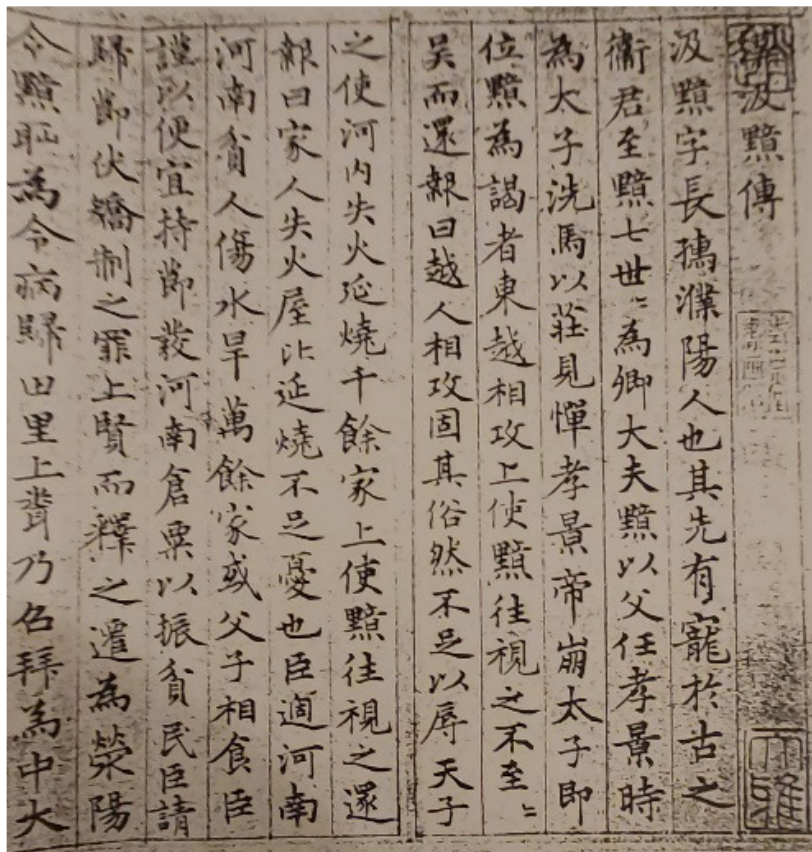 汲黯傳
汲黯字長孺濮陽人也其先有寵於古之
衛君至黯七世〻為卿大夫黯以父任孝景時
為太子洗馬以莊見憚孝景帝崩太子即
位黯為謁者東越相攻上使黯往視之不至〻
吳而還報曰越人相攻固其俗然不足以辱天子
之使河內失火延燒千餘家上使黯往視之還
報曰家人失火屋比延燒不足憂也臣適河南
河南貧人傷水旱萬餘家或父子相食臣
謹以便宜持節發河南倉粟以振貧民臣請
歸節伏矯制之罪上賢而釋之遷為滎陽
令黯耻為令病歸田里上聞乃召拜為中大